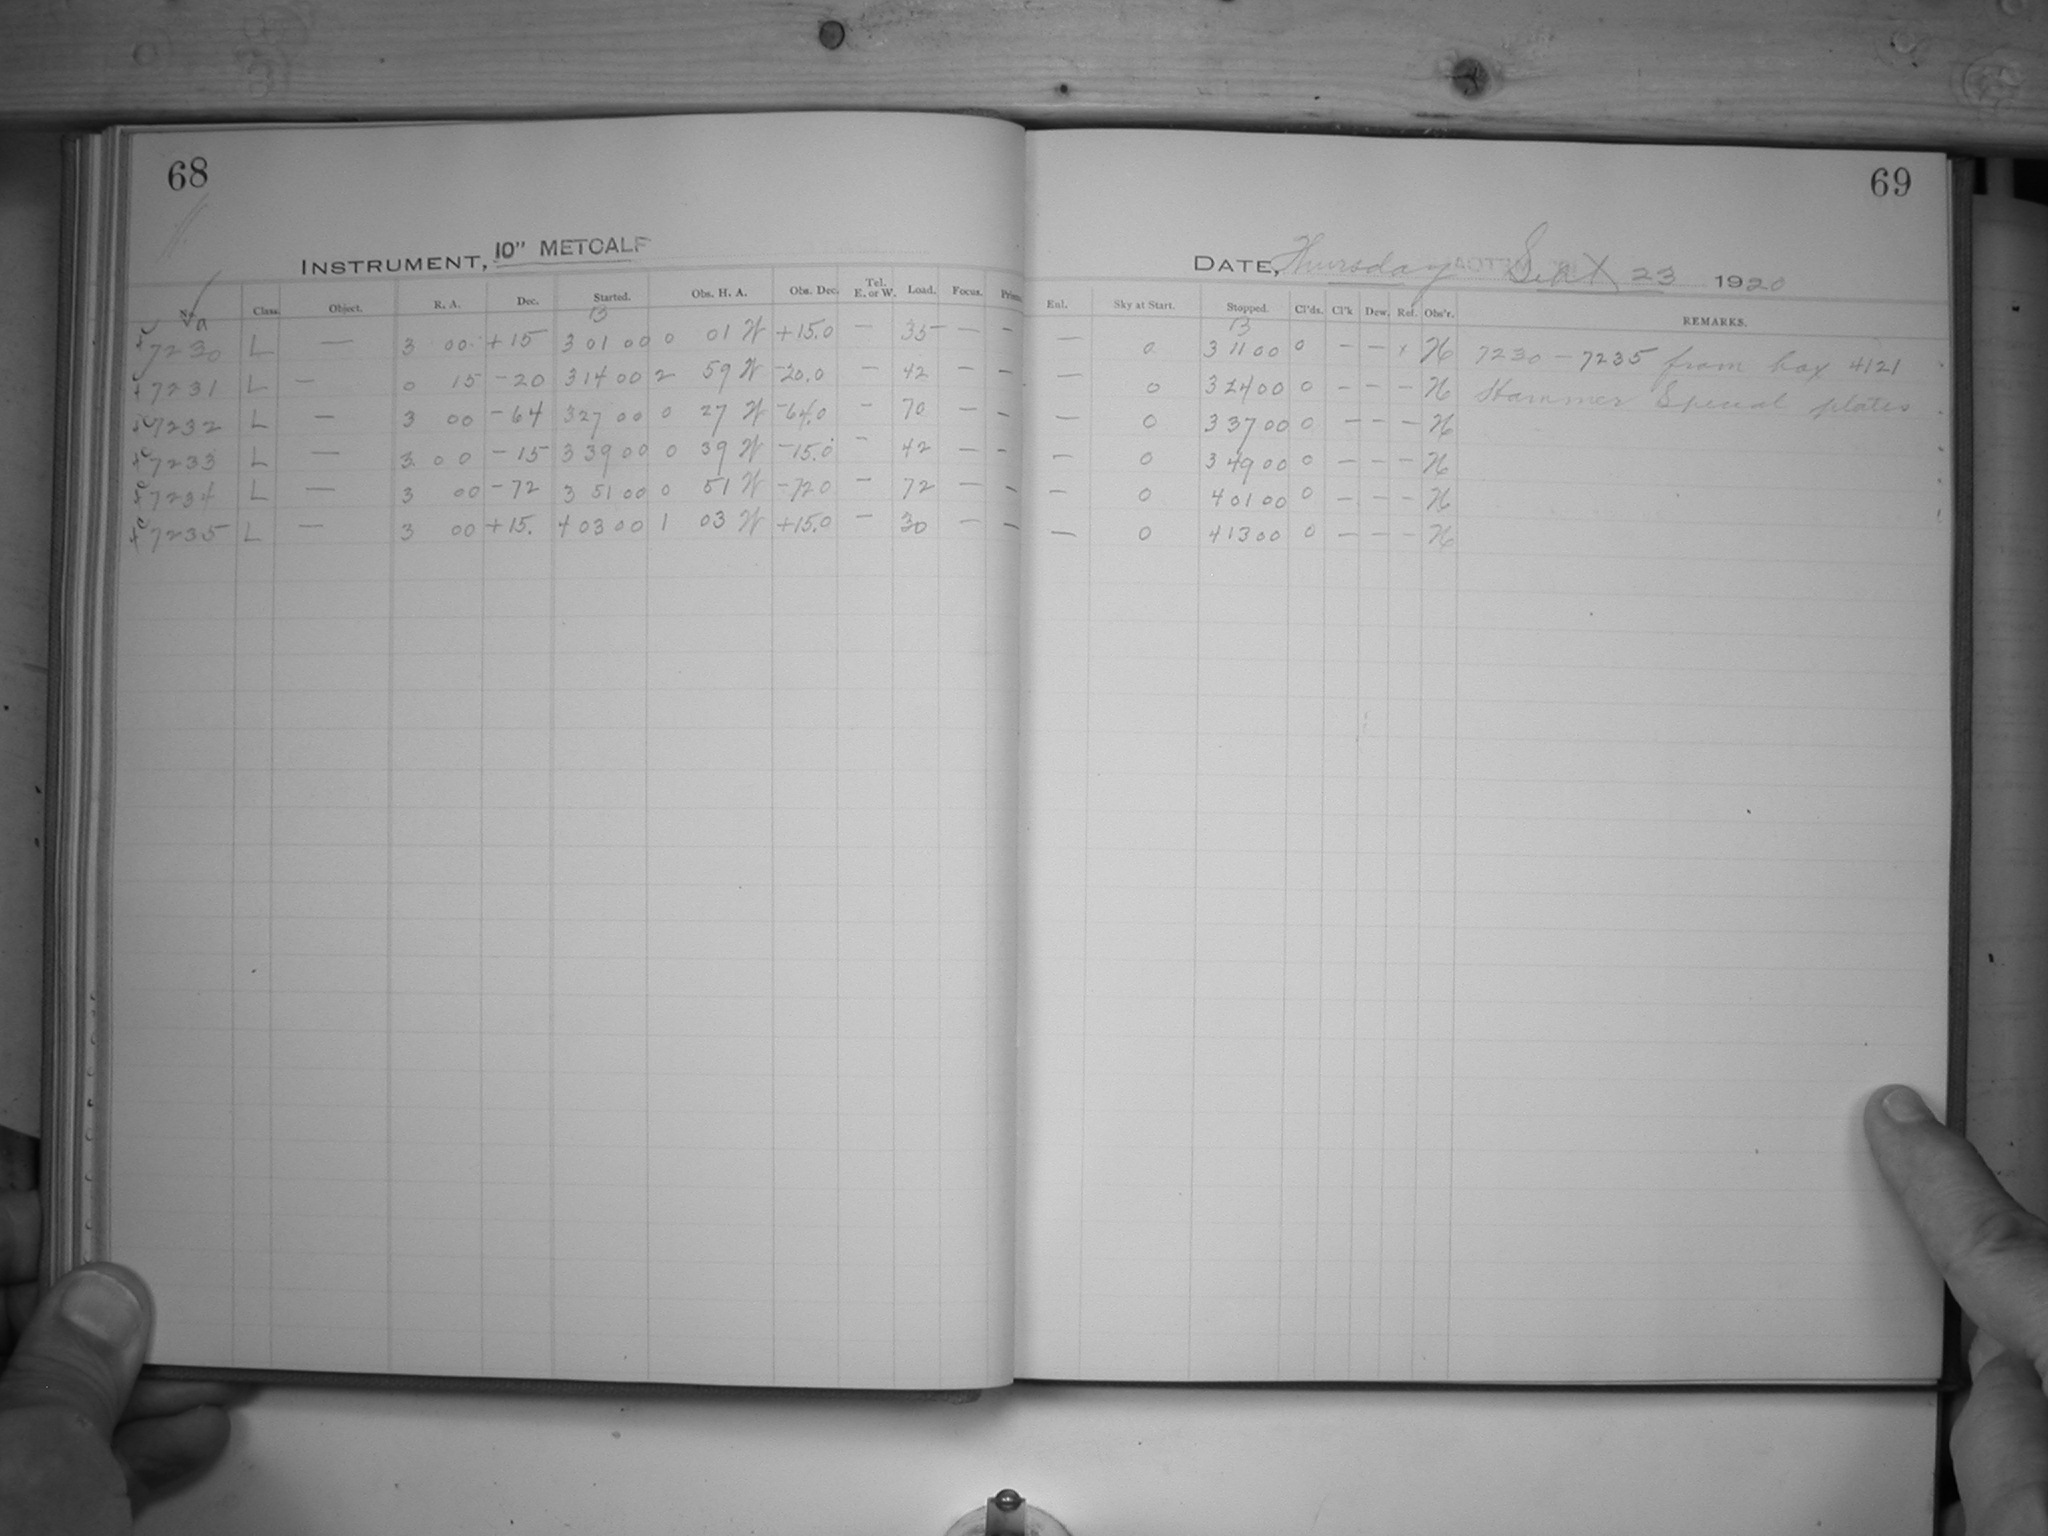 68
69
INSTRUMENT, 10" METCALF
DATE, Thursday Sept 23 1920
No. Class. Object. R. A. Dec. Started. Obs. H. A. Obs. Dec. Tel. E. or W. Load. Focus. Prism. Enl. Sky at Start. Stopped. Cl'ds. Cl'k Dew. Ref. Obs'r. REMARKS.
a 13 13
7230 L — 3 00 +15 3 01 00 0 01 W +15.0 — 35 — — — 0 3 11 00 0 — — x H 7230 – 7235 from box 4121
7231 L — 0 15 -20 3 14 00 2 59 W -20.0 — 42 — — — 0 3 24 00 0 — — — H Hammer Special plates
7232 L — 3 00 -64 3 27 00 0 27 W -64.0 — 70 — — — 0 3 37 00 0 — — — H
7233 L — 3 00 -15 3 39 00 0 39 W -15.0 — 42 — — — 0 3 49 00 0 — — — H
7234 L — 3 00 -72 3 51 00 0 51 W -72.0 — 72 — — — 0 4 01 00 0 — — — H
7235 L — 3 00 +15. 4 03 00 1 03 W +15.0 — 30 — — — 0 4 13 00 0 — — — H